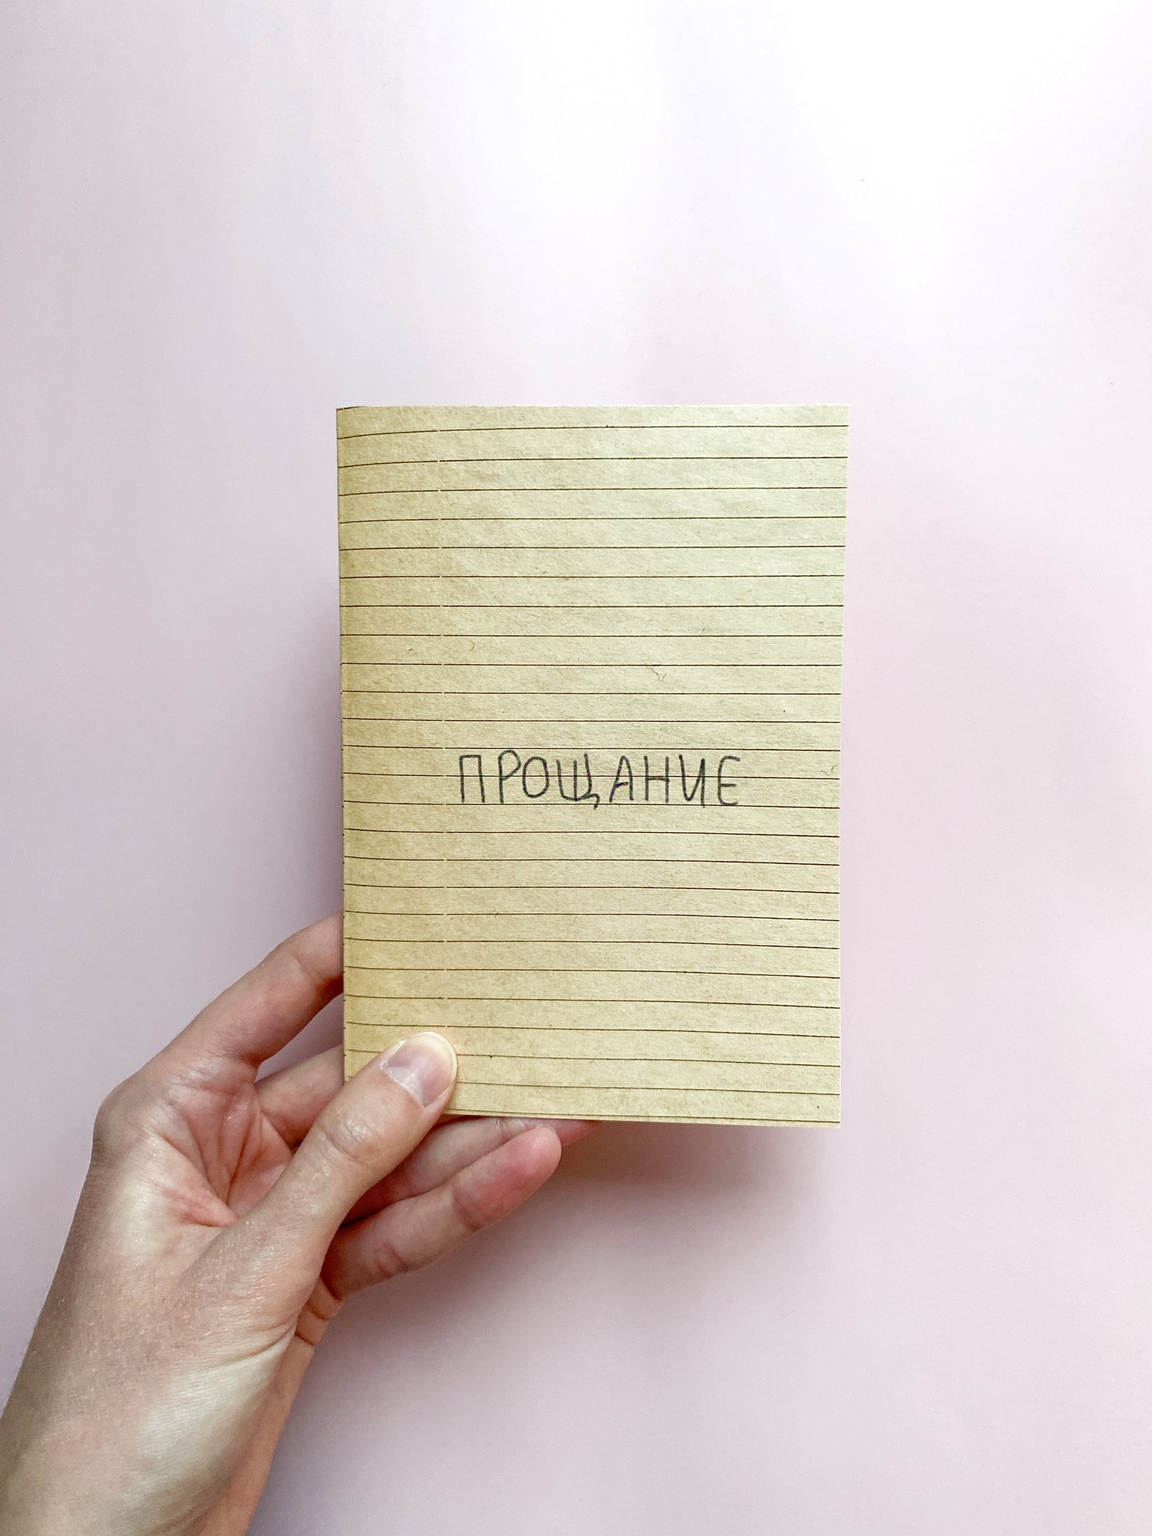 ПРОЩАНИЕ